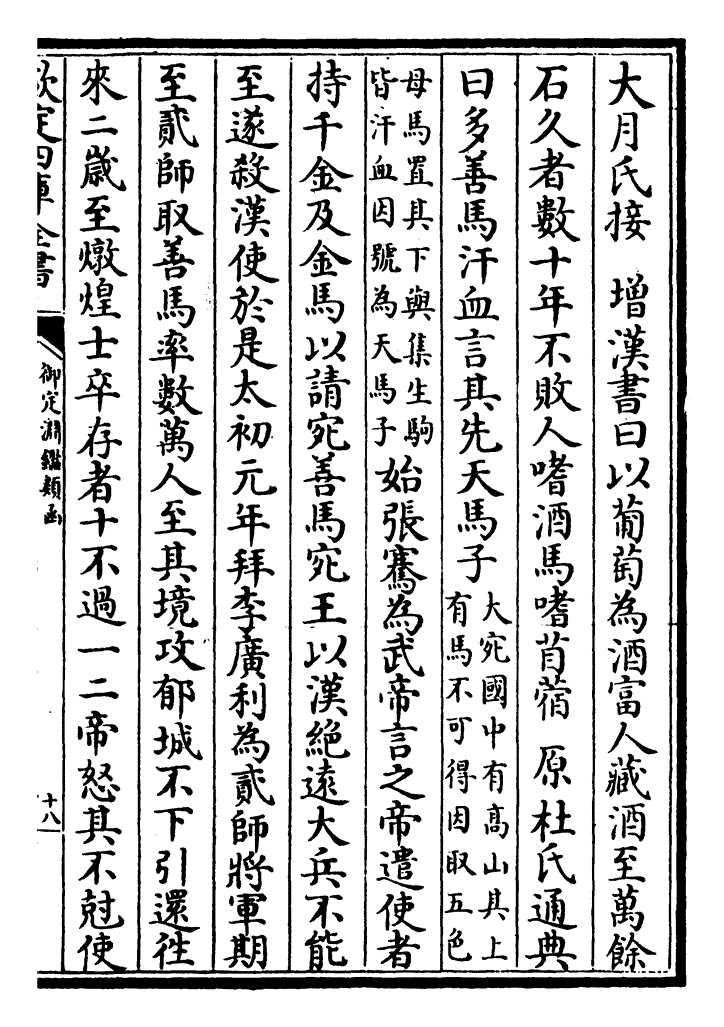 大月氏接　增漢書曰以葡萄為酒富人藏酒至萬餘
石久者數十年不敗人嗜酒馬嗜苜蓿　原杜氏通典
曰多善馬汗血言其先天馬子
大宛國中有高山其上
有馬不可得因取五色
母馬置其下與集生駒
皆汗血因號為天馬子
始張騫為武帝言之帝遣使者
持千金及金馬以請宛善馬宛王以漢絕遠大兵不能
至遂殺漢使於是太初元年拜李廣利為貳師將軍期
至貳師取善馬率數萬人至其境攻郁城不下引還往
來二歲至燉煌士卒存者十不過一二帝怒其不尅使
欽定四庫全書
御定淵鑑類函
十八